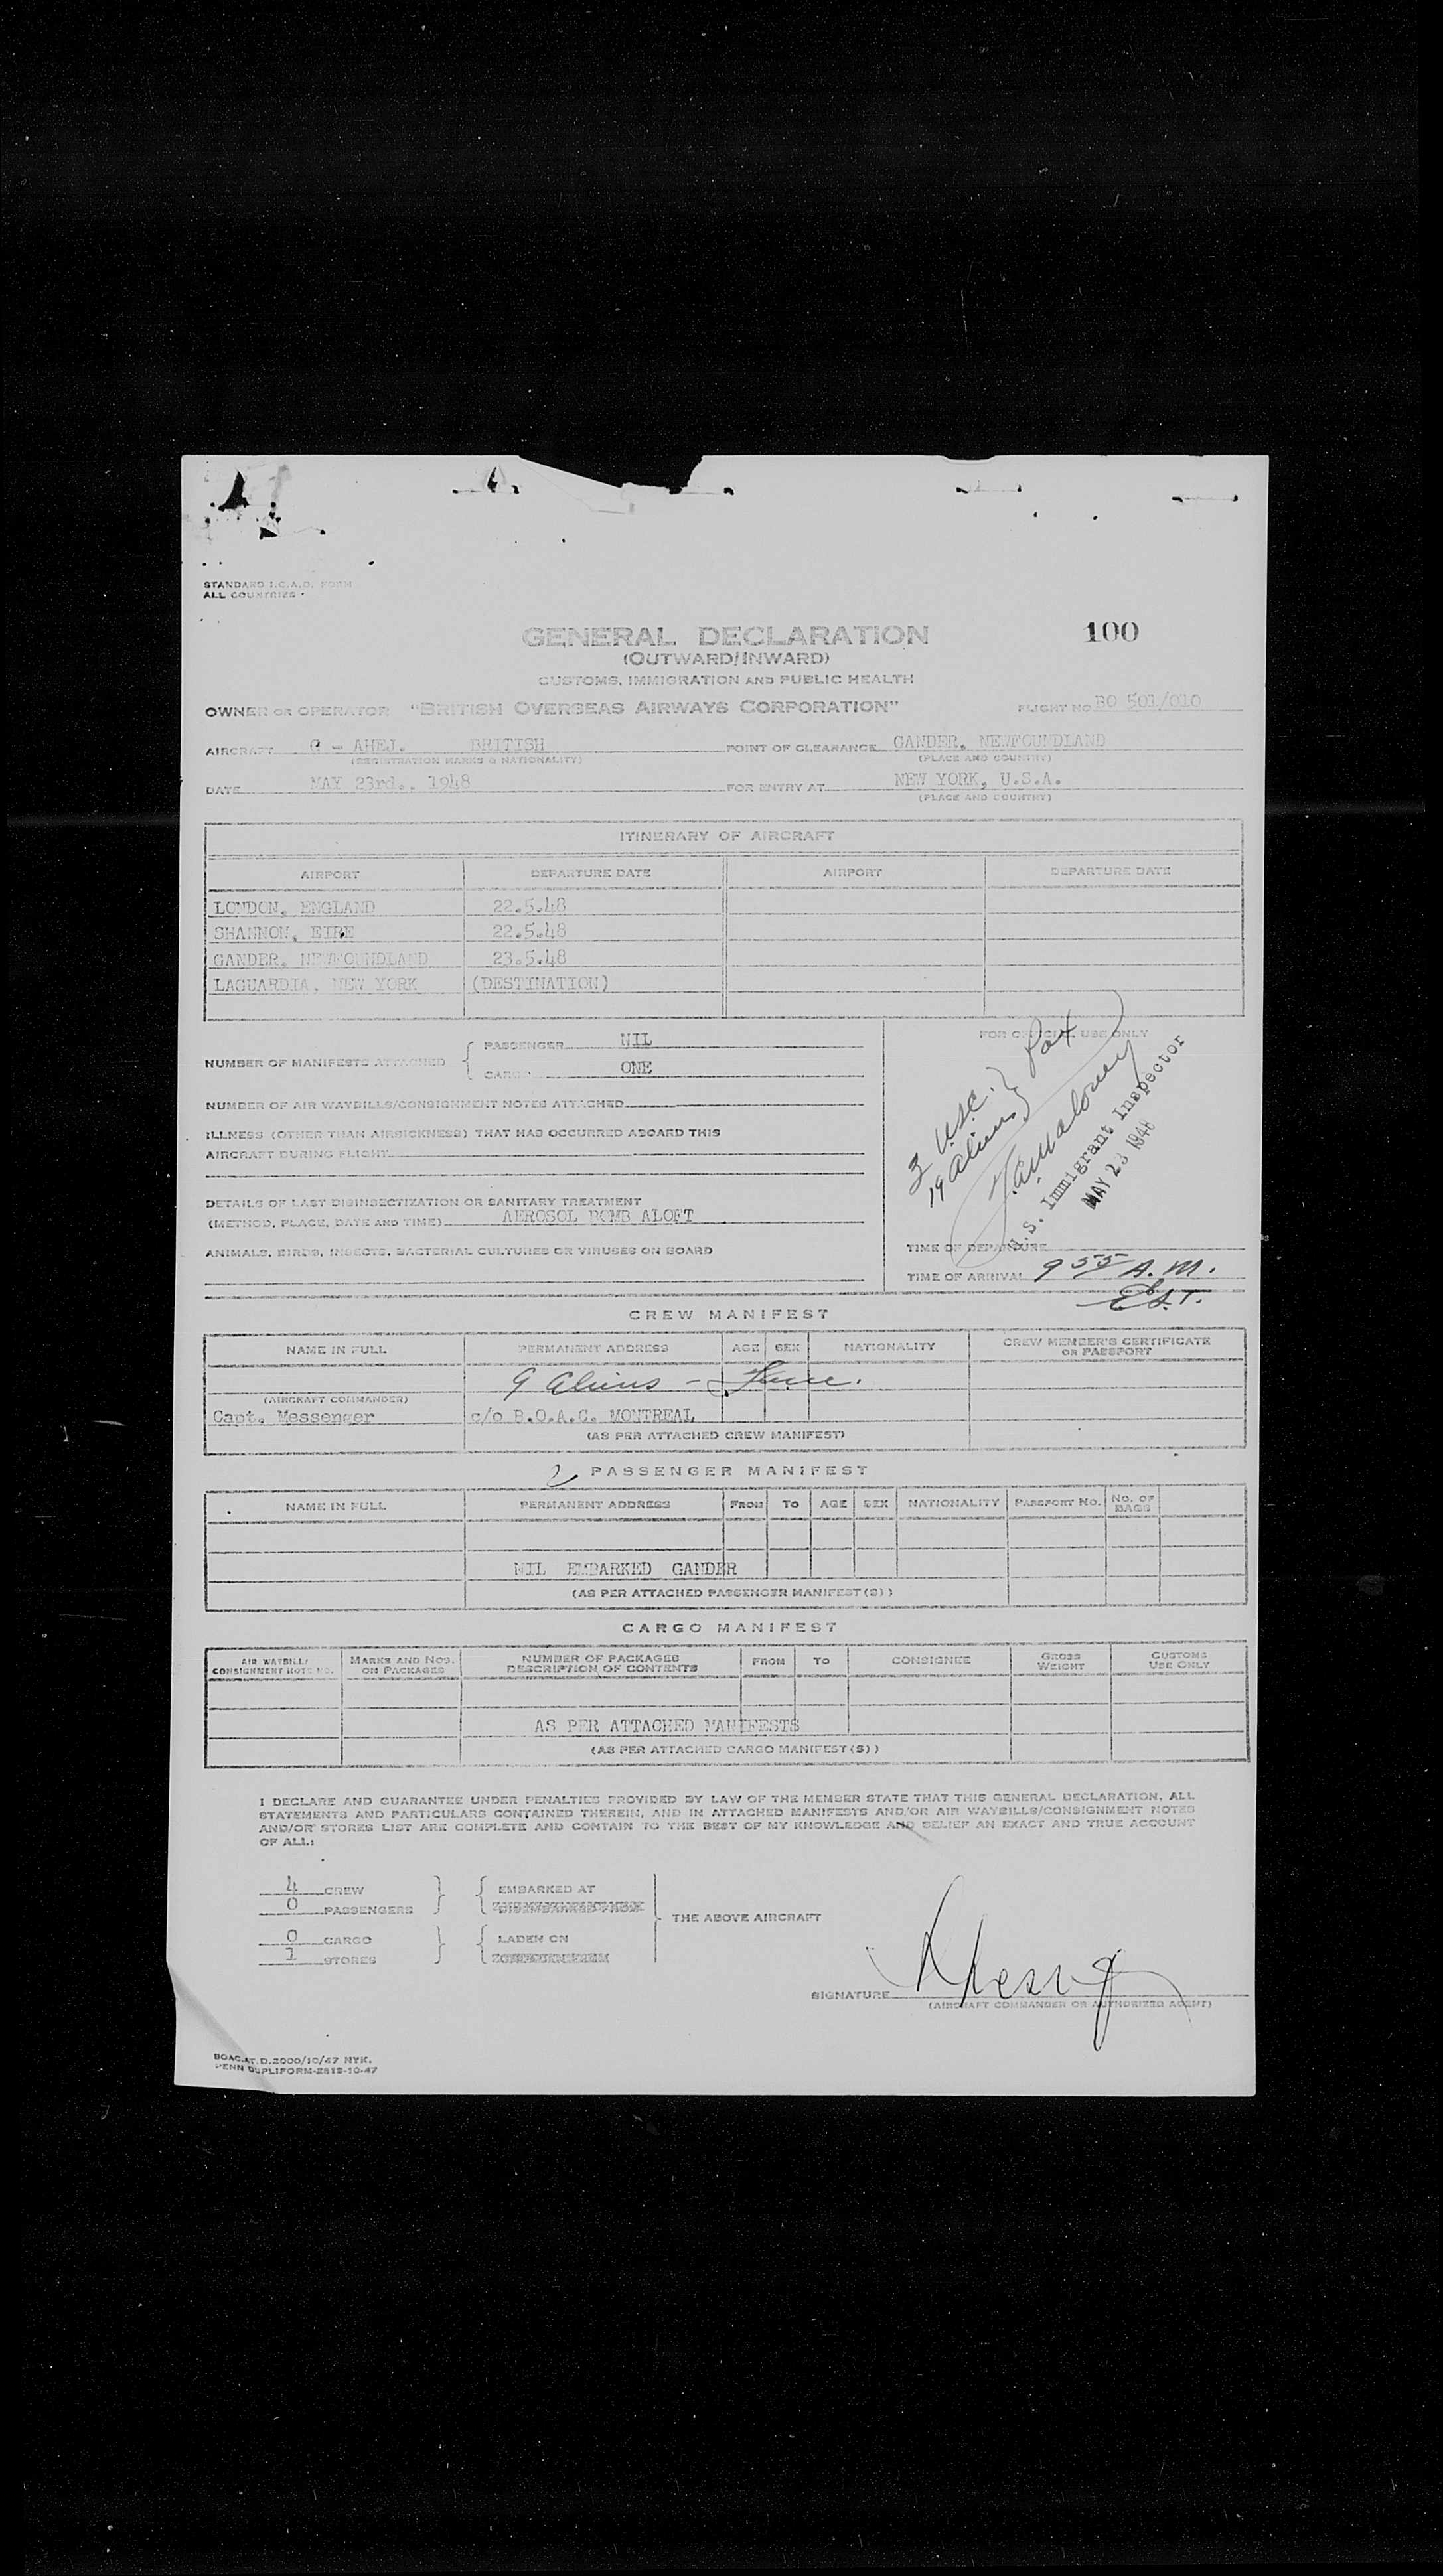 STANDARD I.C.A.O. FORM
ALL COUNTRIES
GENERAL DECLARATION
100
(OUTWARD/INWARD)
CUSTOMS, IMMIGRATION AND PUBLIC HEALTH
OWNER OR OPERATOR "BRITISH OVERSEAS AIRWAYS CORPORATION" FLIGHT NO BO 501/010
AIRCRAFT G - AHEJ. BRITISH POINT OF CLEARANCE GANDER, NEWFOUNDLAND
(REGISTRATION MARKS & NATIONALITY) (PLACE AND COUNTRY)
DATE MAY 23rd., 1948 FOR ENTRY AT NEW YORK, U.S.A.
(PLACE AND COUNTRY)
ITINERARY OF AIRCRAFT
AIRPORT DEPARTURE DATE AIRPORT DEPARTURE DATE
LONDON, ENGLAND 22.5.48
SHANNON, EIRE 22.5.48
GANDER, NEWFOUNDLAND 23.5.48
LAGUARDIA, NEW YORK (DESTINATION)
FOR OFFICIAL USE ONLY
NUMBER OF MANIFESTS ATTACHED
PASSENGER NIL
CARGO ONE
NUMBER OF AIR WAYBILLS/CONSIGNMENT NOTES ATTACHED
ILLNESS (OTHER THAN AIRSICKNESS) THAT HAS OCCURRED ABOARD THIS
AIRCRAFT DURING FLIGHT
DETAILS OF LAST DISINSECTIZATION OR SANITARY TREATMENT
(METHOD, PLACE, DATE AND TIME) AEROSOL BOMB ALOFT
ANIMALS, BIRDS, INSECTS, BACTERIAL CULTURES OR VIRUSES ON BOARD
3 USC.
19 Aliens
Pax
U.S. Immigrant Inspector
MAY 23 1948
TIME OF DEPARTURE
TIME OF ARRIVAL 9 55 A.M.
E.S.T.
CREW MANIFEST
NAME IN FULL PERMANENT ADDRESS AGE SEX NATIONALITY CREW MEMBER'S CERTIFICATE
OR PASSPORT
9 Aliens -
(AIRCRAFT COMMANDER)
Capt. Messenger c/o B.O.A.C. MONTREAL
(AS PER ATTACHED CREW MANIFEST)
PASSENGER MANIFEST
NAME IN FULL PERMANENT ADDRESS FROM TO AGE SEX NATIONALITY PASSPORT NO. NO. OF
BAGS
NIL EMBARKED GANDER
(AS PER ATTACHED PASSENGER MANIFEST(S))
CARGO MANIFEST
AIR WAYBILL/
CONSIGNMENT NOTE NO. MARKS AND NOS.
ON PACKAGES NUMBER OF PACKAGES
DESCRIPTION OF CONTENTS FROM TO CONSIGNEE GROSS
WEIGHT CUSTOMS
USE ONLY
AS PER ATTACHED MANIFESTS
(AS PER ATTACHED CARGO MANIFEST(S))
I DECLARE AND GUARANTEE UNDER PENALTIES PROVIDED BY LAW OF THE MEMBER STATE THAT THIS GENERAL DECLARATION, ALL
STATEMENTS AND PARTICULARS CONTAINED THEREIN, AND IN ATTACHED MANIFESTS AND/OR AIR WAYBILLS/CONSIGNMENT NOTES
AND/OR STORES LIST ARE COMPLETE AND CONTAIN TO THE BEST OF MY KNOWLEDGE AND BELIEF AN EXACT AND TRUE ACCOUNT
OF ALL:
4 CREW
0 PASSENGERS
0 CARGO
1 STORES
EMBARKED AT
LADEN ON
THE ABOVE AIRCRAFT
SIGNATURE
(AIRCRAFT COMMANDER OR AUTHORIZED AGENT)
BOAC.AT.D.2000/10/47 NYK.
PENN DUPLIFORM-2819-10-47